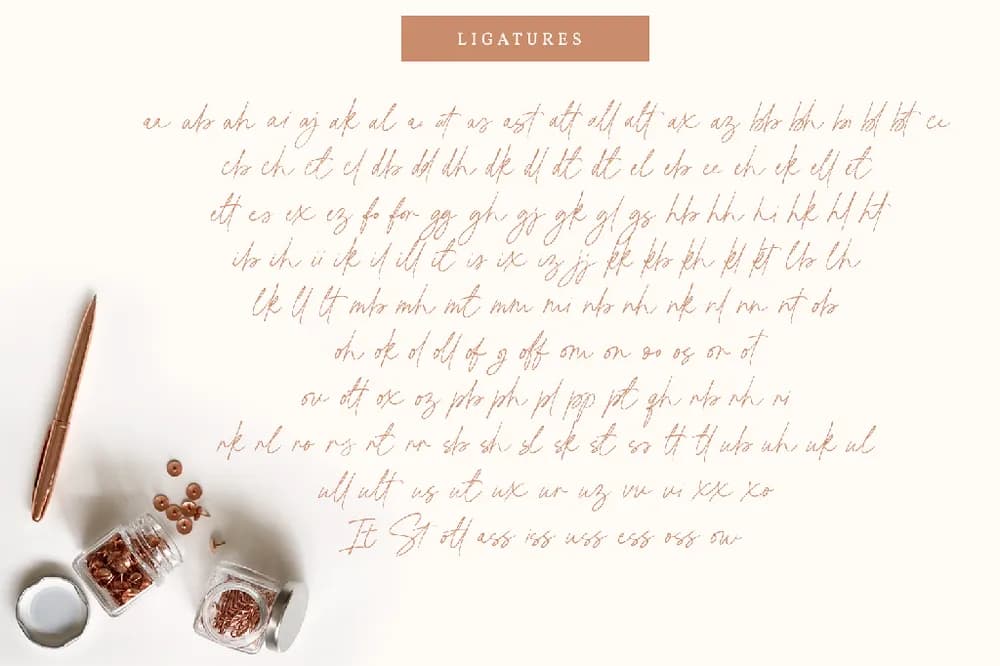 LIGATURES
aa ab ah ai aj ak al at as ast att all alt ax az bb bh bi bl bt cc
cb ch ct cl db dd dh dk dl dt dt el eb ee eh ek ell et
ett es ex ez fo for gg gh gj gk gl gs hb hh hi hk hl ht
ib ih ii ik il ill it is ix iz jj kk kb kh kl kt lb lh
lk ll lt mb mh mt mm mi nb nh nk nl nn nt ob
oh ok ol oll of off om on oo os or ot
ou ott ox oz pb ph pl pp pt qh rb rh ri
rk rl ro rs rt rr sb sh sl sk st ss tt tl ub uh uk ul
ull ult us ut ux ur uz vv vi xx xo
It St otl ass iss uss ess oss ow